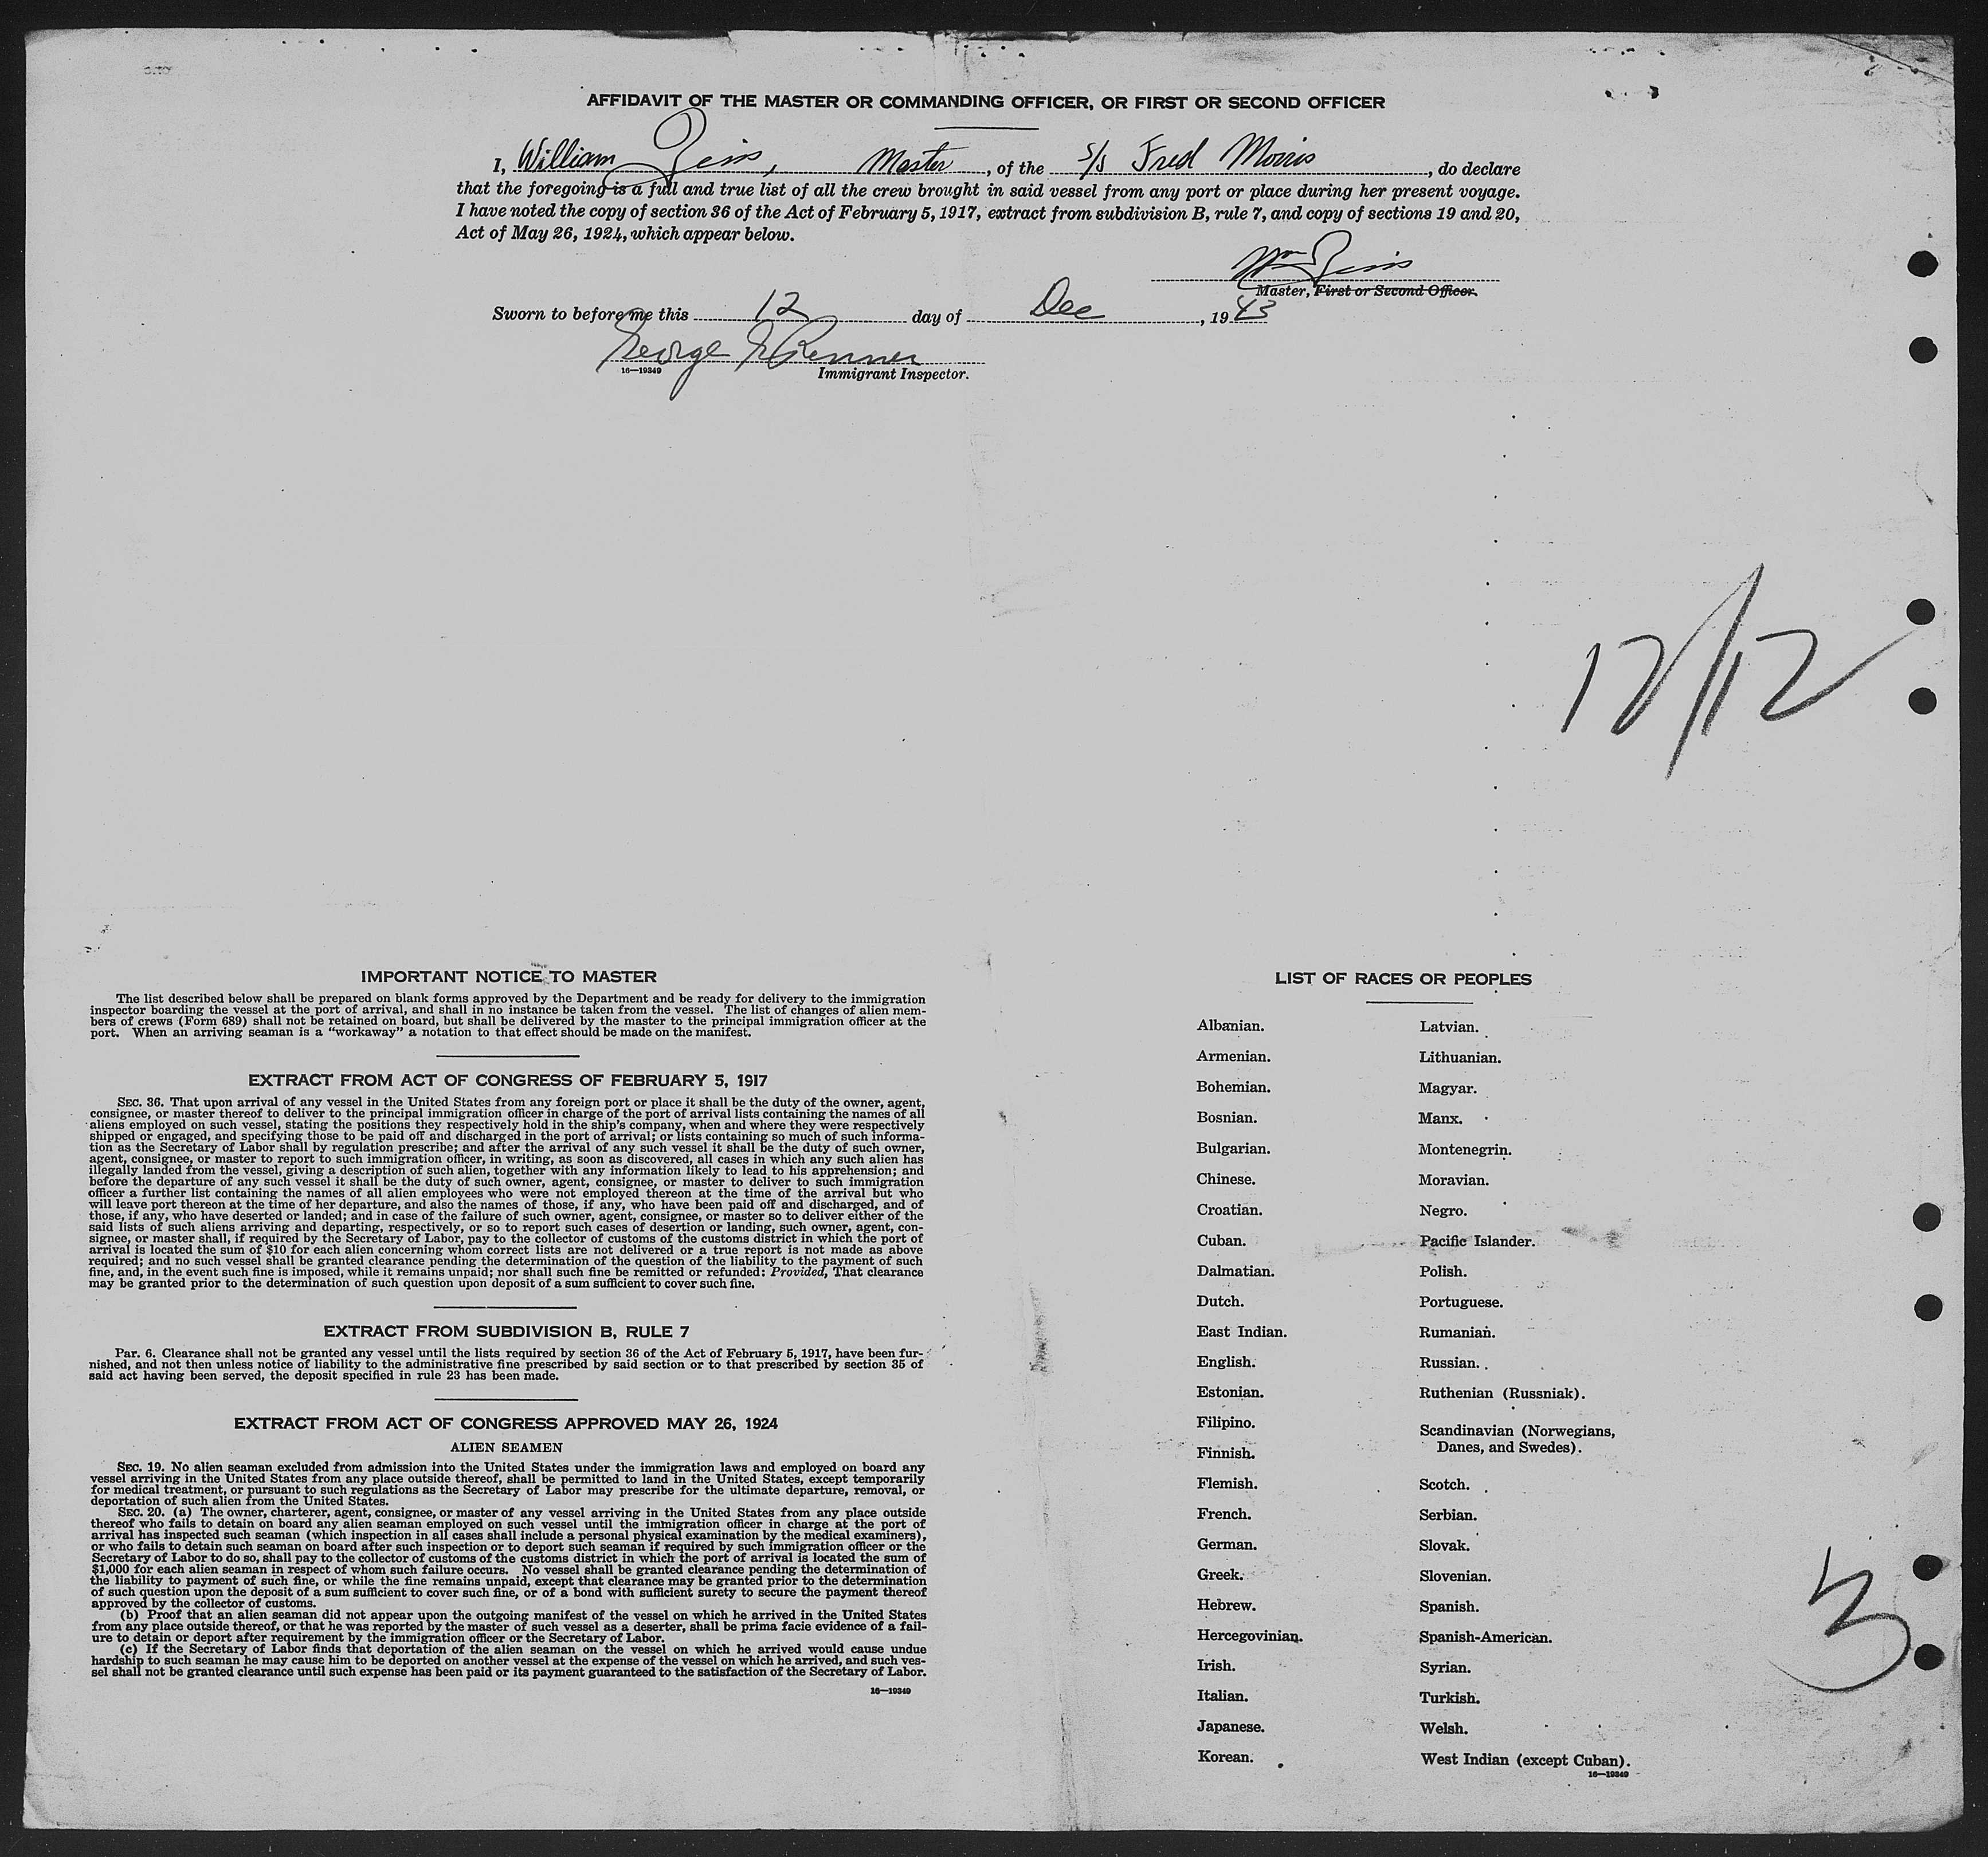 AFFIDAVIT OF THE MASTER OR COMMANDING OFFICER, OR FIRST OR SECOND OFFICER
I, William Zeiss, Master, of the S/S Fred Morris, do declare
that the foregoing is a full and true list of all the crew brought in said vessel from any port or place during her present voyage.
I have noted the copy of section 36 of the Act of February 5, 1917, extract from subdivision B, rule 7, and copy of sections 19 and 20,
Act of May 26, 1924, which appear below.
Wm Zeiss
Master, First or Second Officer.
Sworn to before me this 12 day of Dec, 1943
George Renner
16—19349 Immigrant Inspector.
12/12
IMPORTANT NOTICE TO MASTER
The list described below shall be prepared on blank forms approved by the Department and be ready for delivery to the immigration
inspector boarding the vessel at the port of arrival, and shall in no instance be taken from the vessel. The list of changes of alien mem-
bers of crews (Form 689) shall not be retained on board, but shall be delivered by the master to the principal immigration officer at the
port. When an arriving seaman is a "workaway" a notation to that effect should be made on the manifest.
EXTRACT FROM ACT OF CONGRESS OF FEBRUARY 5, 1917
SEC. 36. That upon arrival of any vessel in the United States from any foreign port or place it shall be the duty of the owner, agent,
consignee, or master thereof to deliver to the principal immigration officer in charge of the port of arrival lists containing the names of all
aliens employed on such vessel, stating the positions they respectively hold in the ship's company, when and where they were respectively
shipped or engaged, and specifying those to be paid off and discharged in the port of arrival; or lists containing so much of such informa-
tion as the Secretary of Labor shall by regulation prescribe; and after the arrival of any such vessel it shall be the duty of such owner,
agent, consignee, or master to report to such immigration officer, in writing, as soon as discovered, all cases in which any such alien has
illegally landed from the vessel, giving a description of such alien, together with any information likely to lead to his apprehension; and
before the departure of any such vessel it shall be the duty of such owner, agent, consignee, or master to deliver to such immigration
officer a further list containing the names of all alien employees who were not employed thereon at the time of the arrival but who
will leave port thereon at the time of her departure, and also the names of those, if any, who have been paid off and discharged, and of
those, if any, who have deserted or landed; and in case of the failure of such owner, agent, consignee, or master so to deliver either of the
said lists of such aliens arriving and departing, respectively, or so to report such cases of desertion or landing, such owner, agent, con-
signee, or master shall, if required by the Secretary of Labor, pay to the collector of customs of the customs district in which the port of
arrival is located the sum of $10 for each alien concerning whom correct lists are not delivered or a true report is not made as above
required; and no such vessel shall be granted clearance pending the determination of the question of the liability to the payment of such
fine, and, in the event such fine is imposed, while it remains unpaid; nor shall such fine be remitted or refunded: Provided, That clearance
may be granted prior to the determination of such question upon deposit of a sum sufficient to cover such fine.
EXTRACT FROM SUBDIVISION B, RULE 7
Par. 6. Clearance shall not be granted any vessel until the lists required by section 36 of the Act of February 5, 1917, have been fur-
nished, and not then unless notice of liability to the administrative fine prescribed by said section or to that prescribed by section 35 of
said act having been served, the deposit specified in rule 23 has been made.
EXTRACT FROM ACT OF CONGRESS APPROVED MAY 26, 1924
ALIEN SEAMEN
SEC. 19. No alien seaman excluded from admission into the United States under the immigration laws and employed on board any
vessel arriving in the United States from any place outside thereof, shall be permitted to land in the United States, except temporarily
for medical treatment, or pursuant to such regulations as the Secretary of Labor may prescribe for the ultimate departure, removal, or
deportation of such alien from the United States.
SEC. 20. (a) The owner, charterer, agent, consignee, or master of any vessel arriving in the United States from any place outside
thereof who fails to detain on board any alien seaman employed on such vessel until the immigration officer in charge at the port of
arrival has inspected such seaman (which inspection in all cases shall include a personal physical examination by the medical examiners),
or who fails to detain such seaman on board after such inspection or to deport such seaman if required by such immigration officer or the
Secretary of Labor to do so, shall pay to the collector of customs of the customs district in which the port of arrival is located the sum of
$1,000 for each alien seaman in respect of whom such failure occurs. No vessel shall be granted clearance pending the determination of
the liability to payment of such fine, or while the fine remains unpaid, except that clearance may be granted prior to the determination
of such question upon the deposit of a sum sufficient to cover such fine, or of a bond with sufficient surety to secure the payment thereof
approved by the collector of customs.
(b) Proof that an alien seaman did not appear upon the outgoing manifest of the vessel on which he arrived in the United States
from any place outside thereof, or that he was reported by the master of such vessel as a deserter, shall be prima facie evidence of a fail-
ure to detain or deport after requirement by the immigration officer or the Secretary of Labor.
(c) If the Secretary of Labor finds that deportation of the alien seaman on the vessel on which he arrived would cause undue
hardship to such seaman he may cause him to be deported on another vessel at the expense of the vessel on which he arrived, and such ves-
sel shall not be granted clearance until such expense has been paid or its payment guaranteed to the satisfaction of the Secretary of Labor.
16—19349
LIST OF RACES OR PEOPLES
Albanian.
Armenian.
Bohemian.
Bosnian.
Bulgarian.
Chinese.
Croatian.
Cuban.
Dalmatian.
Dutch.
East Indian.
English.
Estonian.
Filipino.
Finnish.
Flemish.
French.
German.
Greek.
Hebrew.
Hercegovinian.
Irish.
Italian.
Japanese.
Korean.
Latvian.
Lithuanian.
Magyar.
Manx.
Montenegrin.
Moravian.
Negro.
Pacific Islander.
Polish.
Portuguese.
Rumanian.
Russian.
Ruthenian (Russniak).
Scandinavian (Norwegians,
Danes, and Swedes).
Scotch.
Serbian.
Slovak.
Slovenian.
Spanish.
Spanish-American.
Syrian.
Turkish.
Welsh.
West Indian (except Cuban).
16—19349
3